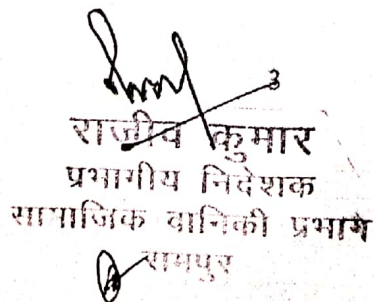 3
राजीव कुमार
प्रभागीय निदेशक
सामाजिक वानिकी प्रभाग
रामपुर